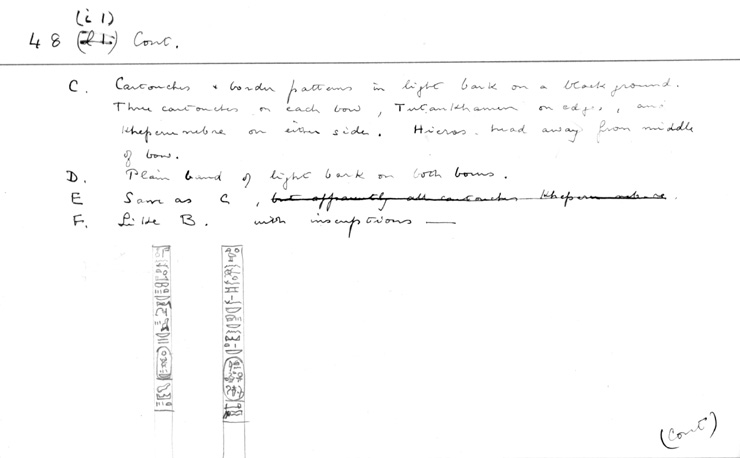 (i 1)
48 Cont.
C. Cartouches + border patterns in light bark on a black ground.
Three cartouches on each bow, Tutankhamen on edges, and
Kheperunebre on either side. Hieros. head away from middle
of bow.
D. Plain band of light bark on both bows.
E Same as C, but apparently all cartouches Kheperunebre.
F. Like B. with inscriptions —
(Cont)